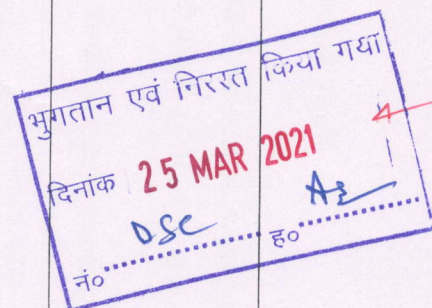 भुगतान एवं निररत किया गया
दिनांक 25 MAR 2021
DSC
नं० ह०